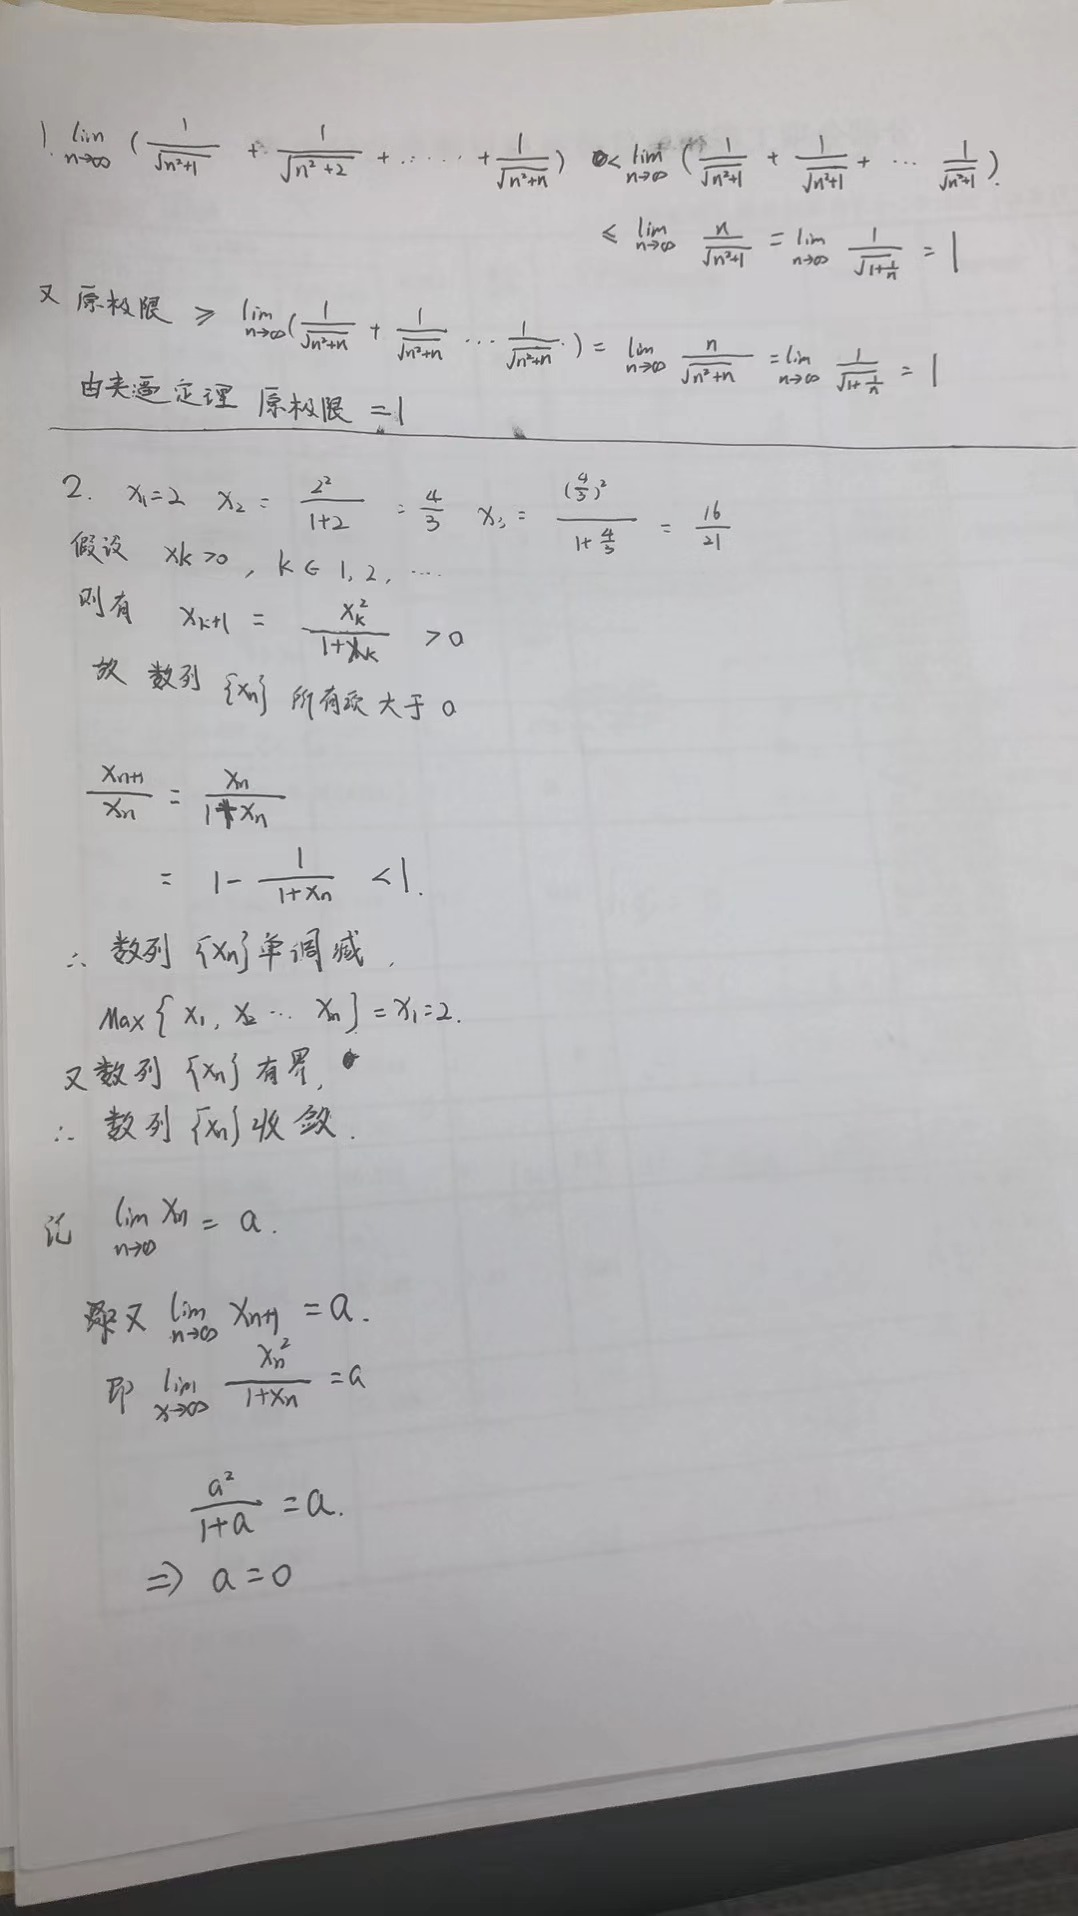 1. lim n→∞ (1/√(n²+1) + 1/√(n²+2) + ...... + 1/√(n²+n)) < lim n→∞ (1/√(n²+1) + 1/√(n²+1) + ... 1/√(n²+1)).
≤ lim n→∞ n/√(n²+1) = lim n→∞ 1/√(1+1/n) = 1
又 原极限 ≥ lim n→∞ (1/√(n²+n) + 1/√(n²+n) ... 1/√(n²+n)) = lim n→∞ n/√(n²+n) = lim n→∞ 1/√(1+1/n) = 1
由夹逼定理 原极限 = 1
2. x₁=2 x₂ = 2²/(1+2) = 4/3 x₃ = (4/3)²/(1+4/3) = 16/21
假设 xk>0, k∈1,2,....
则有 x_{k+1} = x_k²/(1+x_k) >0
故 数列 {xn} 所有项大于0
x_{n+1}/x_n = x_n/(1+x_n)
= 1 - 1/(1+x_n) <1.
∴ 数列 {xn} 单调减,
Max{x₁, x₂ ... xn} = x₁=2.
又数列 {xn} 有界,
∴ 数列 {xn} 收敛.
记 lim n→∞ xn = a.
又 lim n→∞ x_{n+1} = a.
即 lim x→∞ x_n²/(1+x_n) = a
a²/(1+a) = a.
⇒ a=0